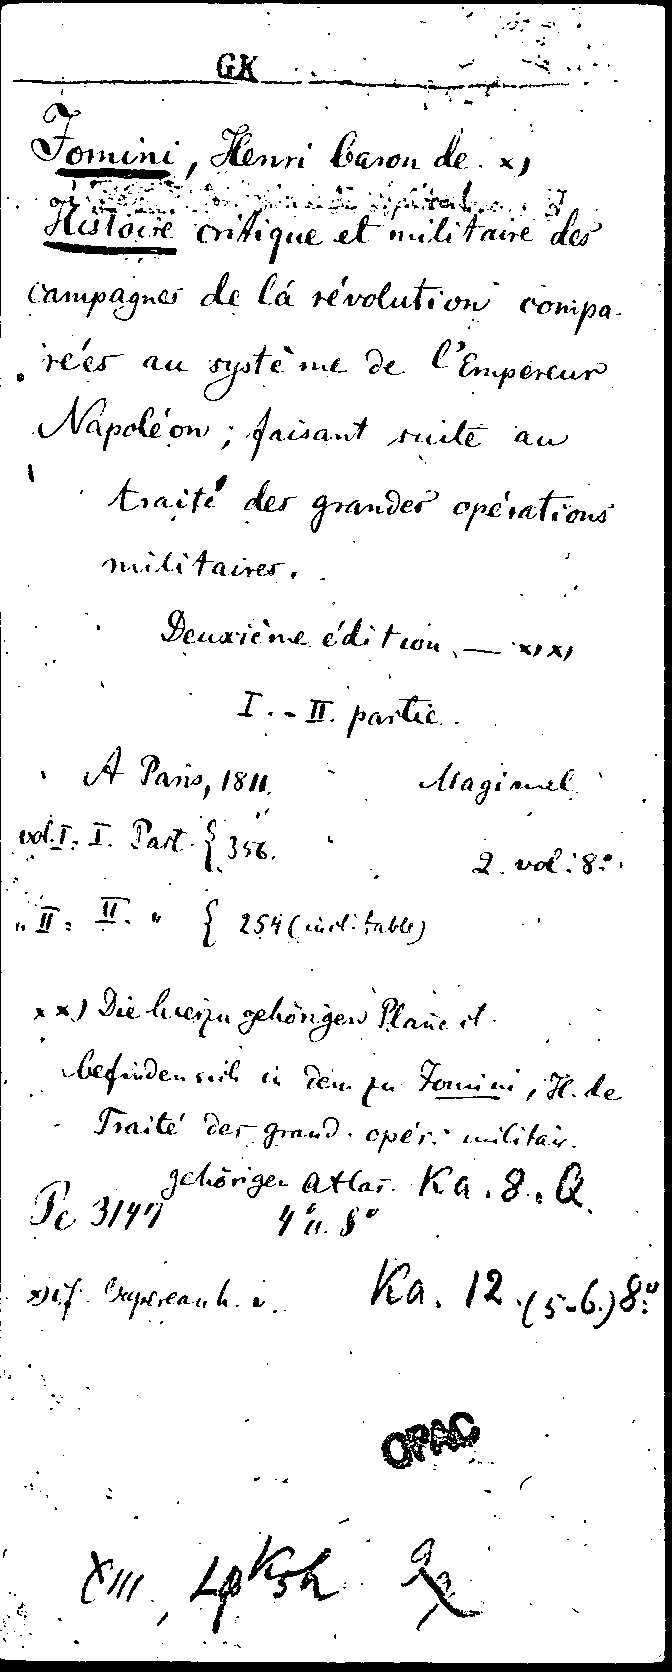 GK
Jomini, Henri baron de. x)
Histoire critique et militaire des
campagnes de la révolution compa-
rées au système de l'Empereur
Napoléon; faisant suite au
traité des grandes opérations
militaires.
Deuxième édition. — x)x)
I. - II. partie.
A Paris, 1811. Magimel
vol. I. I. Part. { 356.
2. vol: 8º.
" II. II. " { 254 (incl. table)
xx) Die hierzu gehörigen Pläne
befinden sich in dem zu Jomini, H. de
Traité des grand. opér. militair.
gehörigen Atlas. Ka. 8. Q.
Pc 3147 4º u. 8º
x) cf. Vapereau h. v. Ka. 12. (5-6.) 8º
OPAC
XIII,